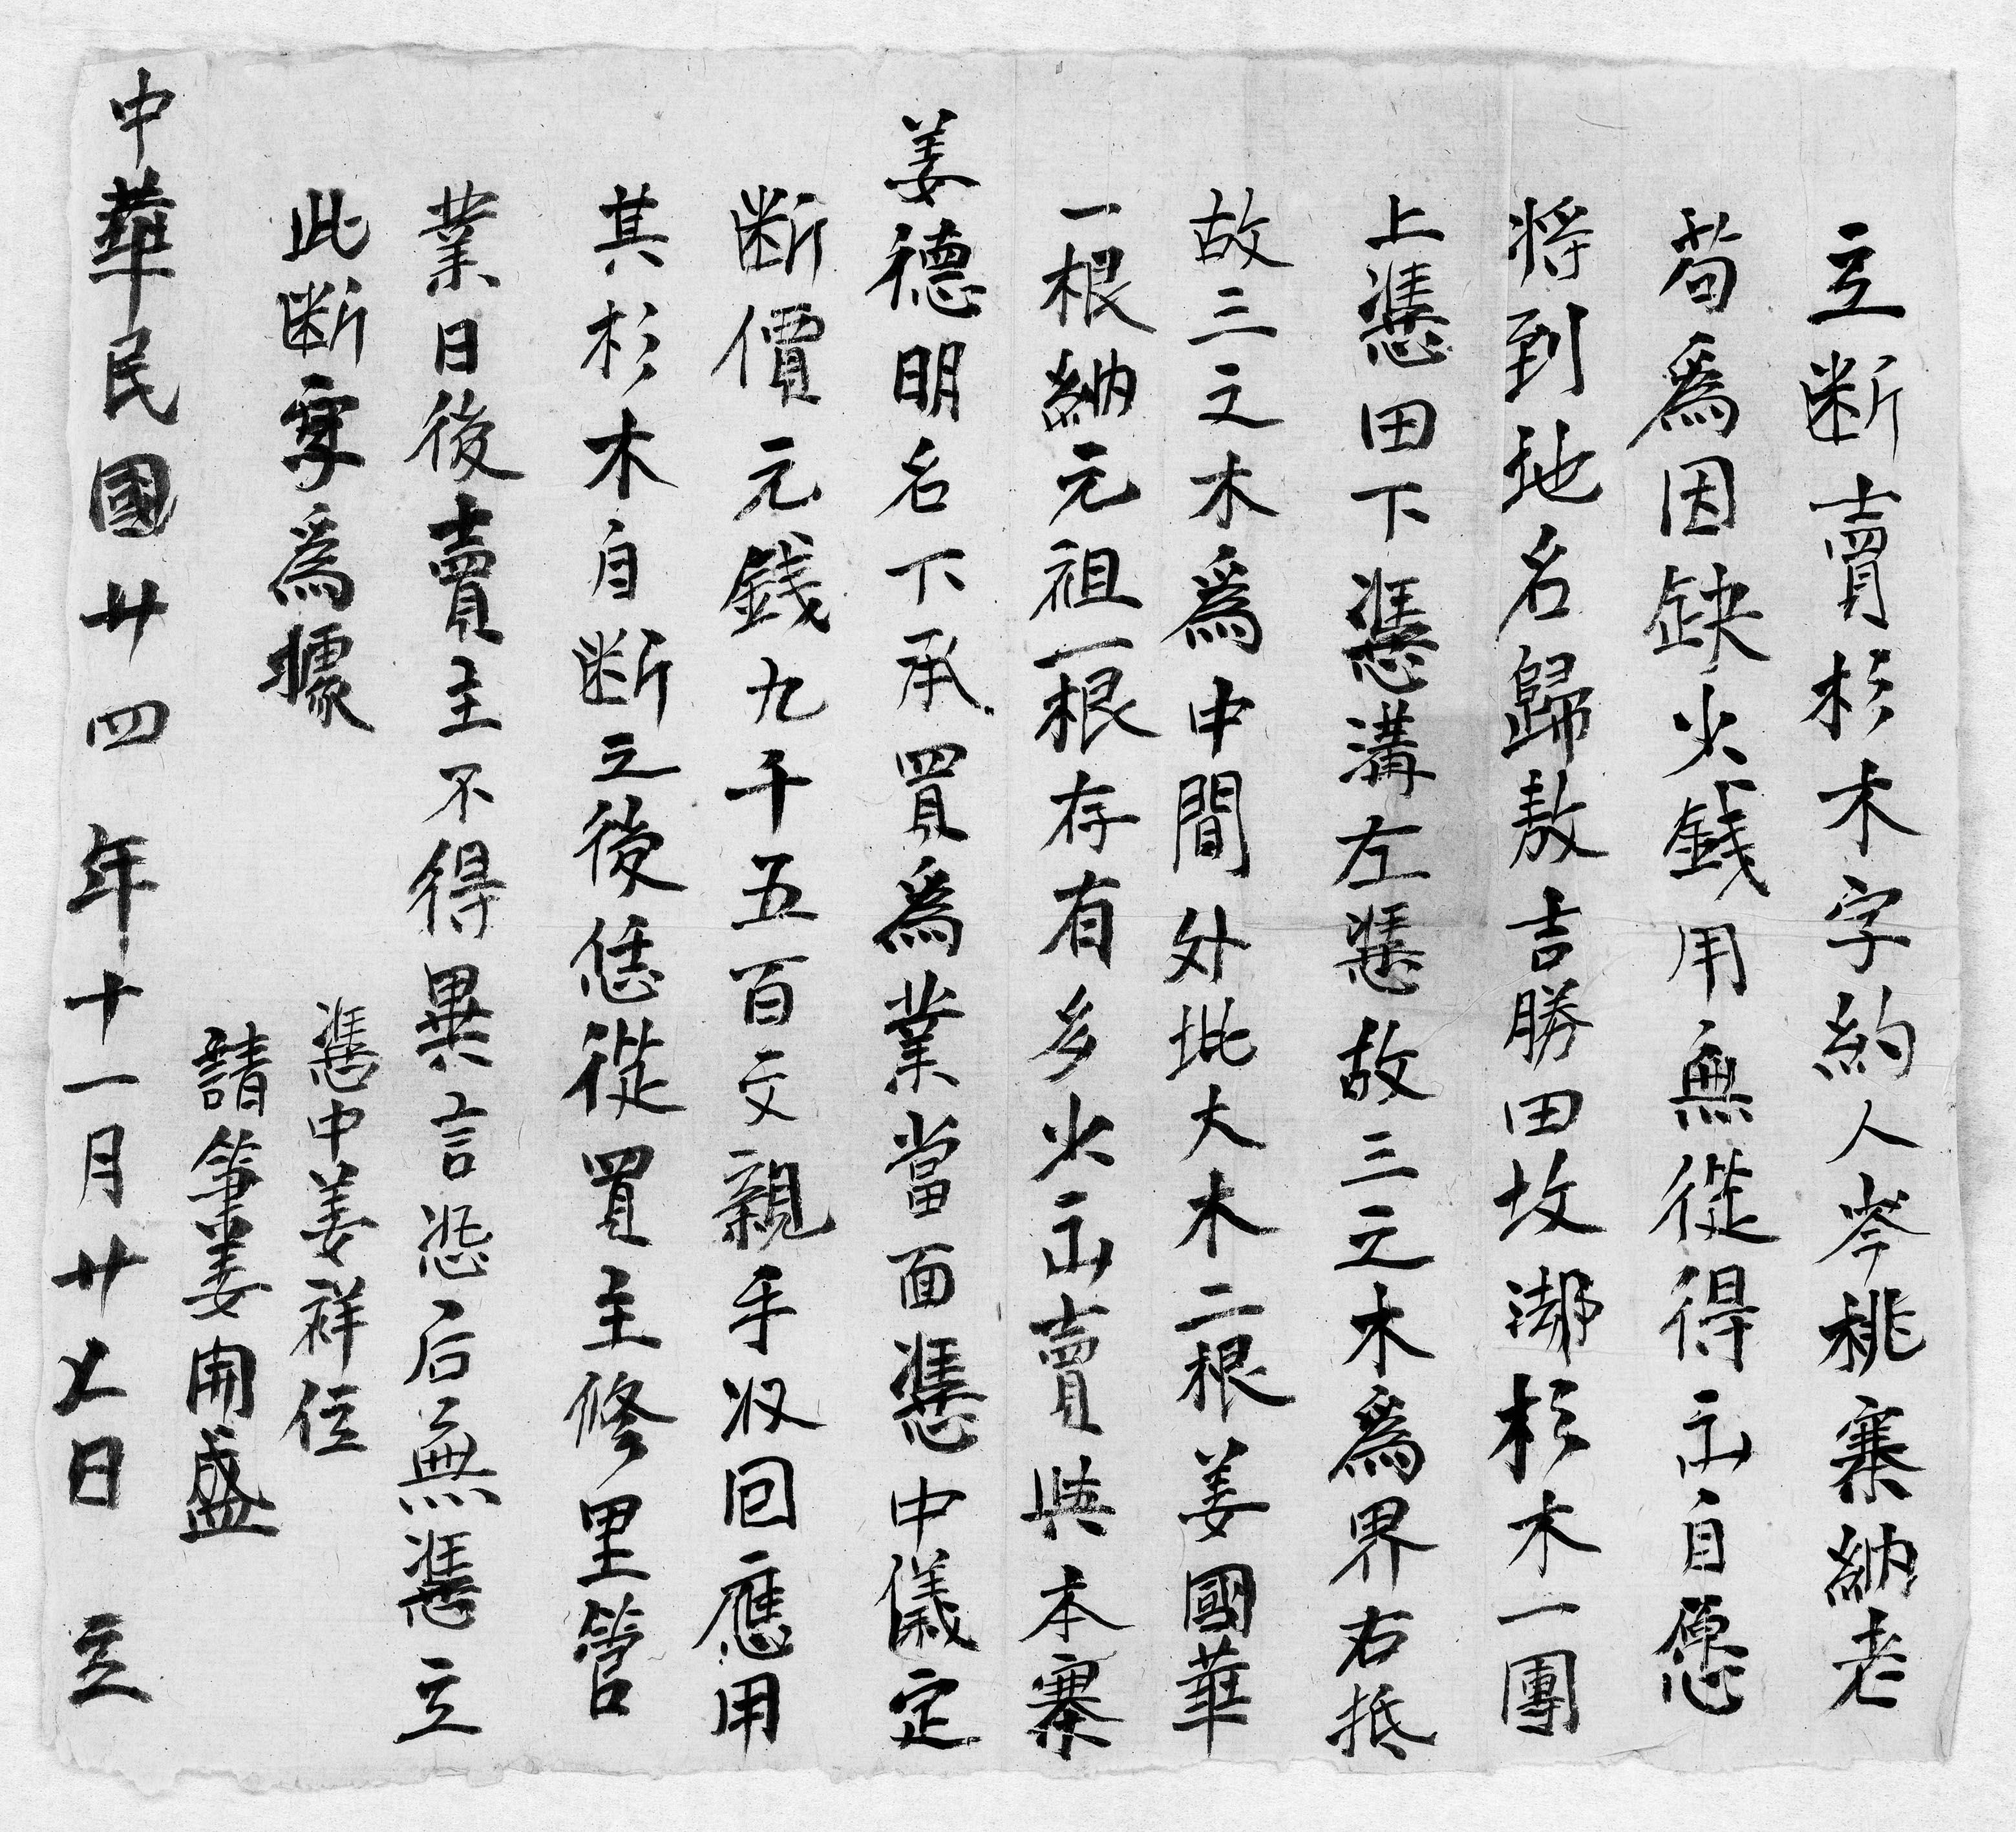 立断賣杉木字約人岑桃寨納老
苟為因缺少錢用無從得出自愿
將到地名歸敖吉勝田坎𡌶杉木一團
上憑田下憑溝左憑故三之木為界右抵
故三之木為中間外批大木二根姜國華
一根納元祖一根存有多少出賣與本寨
姜德明名下承買為業當面憑中儀定
断價元錢九千五百文親手收回應用
其杉木自断之後恁從買主修里管
業日後賣主不得異言恐后無憑立
此断字為據
憑中姜祥位
請筆姜開盛
中華民國廿四年十一月廿七日 立